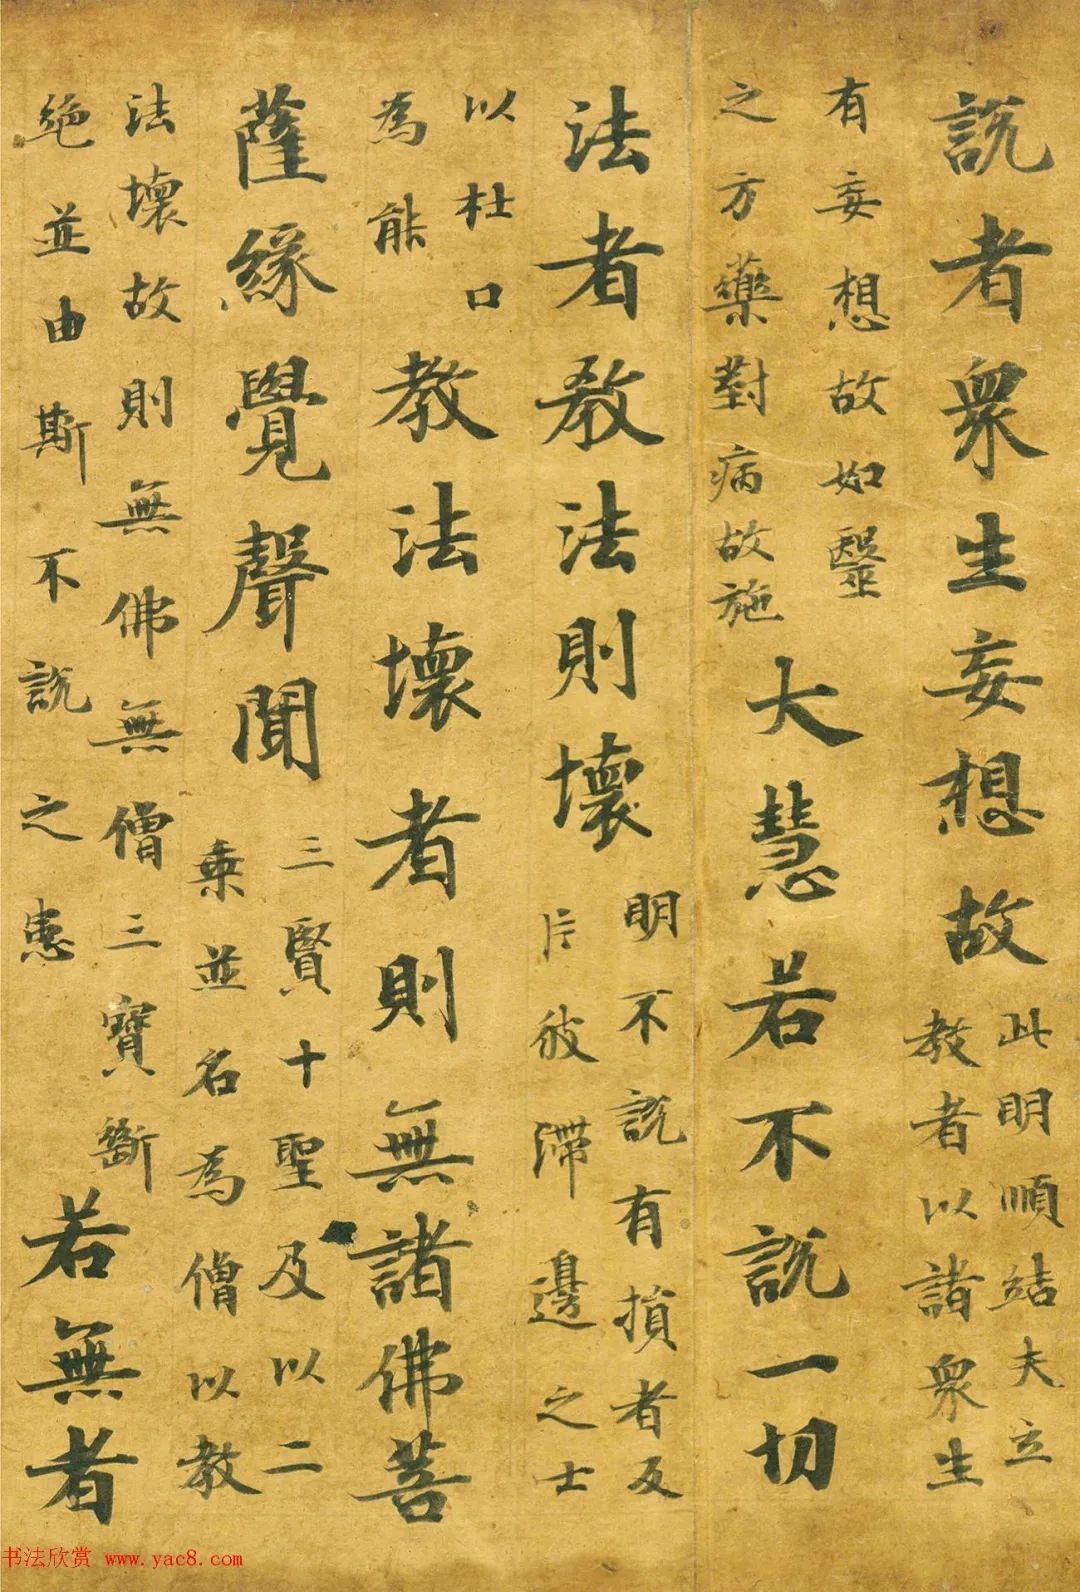 說者衆生妄想故
此明順結夫立
教者以諸衆生
有妄想故如毉
之方藥對病故施
大慧若不說一切
法者教法則壞
明不說有損者及
斥彼滯邊之士
以杜口
為能
教法壞者則無諸佛菩
薩緣覺聲聞
三賢十聖及以二
乗並名為僧以教
法壞故則無佛無僧三寶斷
絕並由斯不說之患
若無者
书法欣赏 www.yac8.com